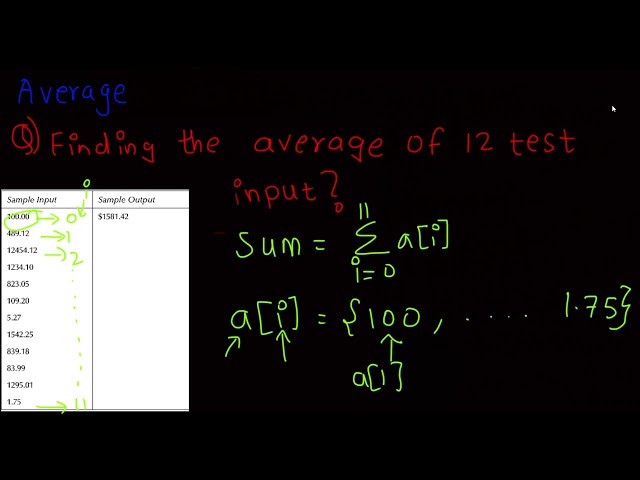 Average
Q) Finding the average of 12 test
input?
i
Sample Input Sample Output
100.00 → 0 $1581.42
489.12 → 1
12454.12 → 2
1234.10
823.05
109.20
5.27
1542.25
839.18
83.99
1295.01
1.75 → 11
11
Sum = Σ a[i]
i=0
a[i] = {100, ..... 1.75}
a[1]